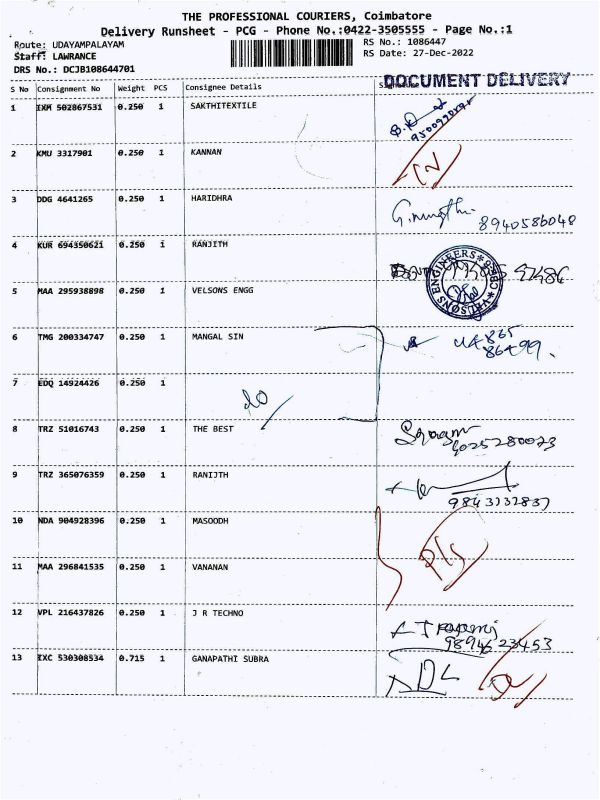 THE PROFESSIONAL COURIERS, Coimbatore
Delivery Runsheet - PCG - Phone No.:0422-3505555 - Page No.:1
Route: UDAYAMPALAYAM
RS No.: 1086447
Staff: LAWRANCE
RS Date: 27-Dec-2022
DRS No.: DCJB108644701
DOCUMENT DELIVERY
S No Consignment No Weight PCS Consignee Details
1 IXM 502867531 0.250 1 SAKTHITEXTILE
2 KMU 3317901 0.250 1 KANNAN
3 DDG 4641265 0.250 1 HARIDHRA
8940586048
4 KUR 694350621 0.250 1 RANJITH
5 MAA 295938898 0.250 1 VELSONS ENGG
VELSONS ENGINEERS
6 TMG 200334747 0.250 1 MANGAL SIN
7 EDQ 14924426 0.250 1
8 TRZ 51016743 0.250 1 THE BEST
9 TRZ 365076359 0.250 1 RANIJTH
9843132837
10 NDA 904928396 0.250 1 MASOODH
11 MAA 296841535 0.250 1 VANANAN
12 VPL 216437826 0.250 1 J R TECHNO
9894623453
13 IXC 530308534 0.715 1 GANAPATHI SUBRA